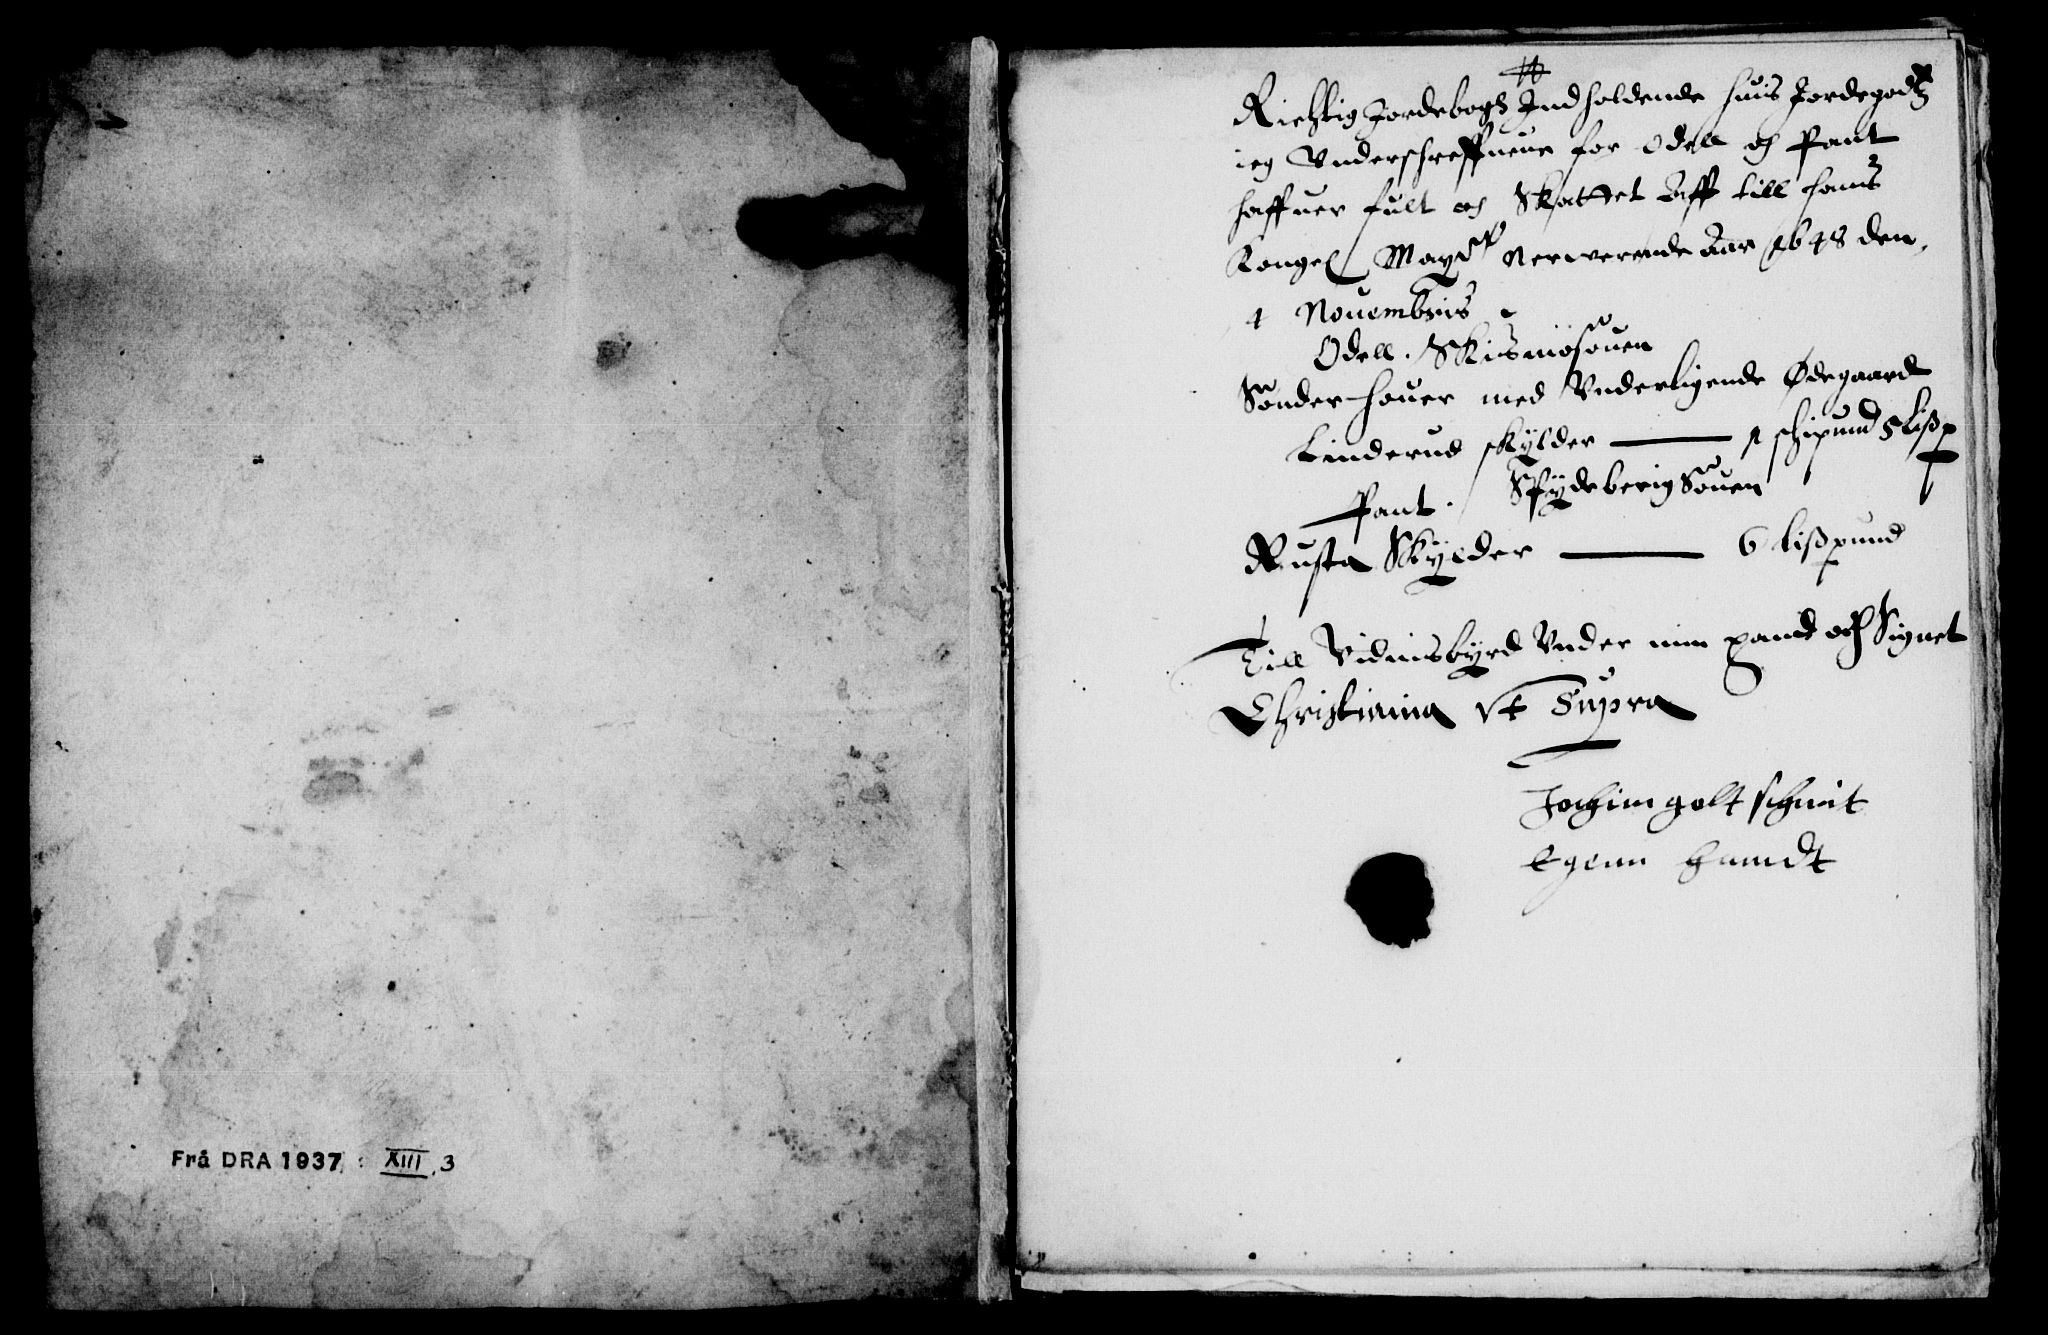 Frå DRA 1937 : XIII, 3
Richtig Jordebogh Indholdende huis Jordegodtz
ieg Vnderschreffuene for Odell og Pant
haffuer fult og Skattet Aff till hans
Kongel Mayt Nerwerende Aar 1648 den
4 Nouembris
Odell. Skis
Sonder houer med Vnderligende Ødegaard
Linderud skylder — 1 schipund 5 lisp
Pant. Spydeberig Souen
Rusta Skylder — 6 lispund
Till Vidnisbyrd Vnder min haand och Signet
Christiania Vt Supra
Jochim goltschmit
Egenn handt